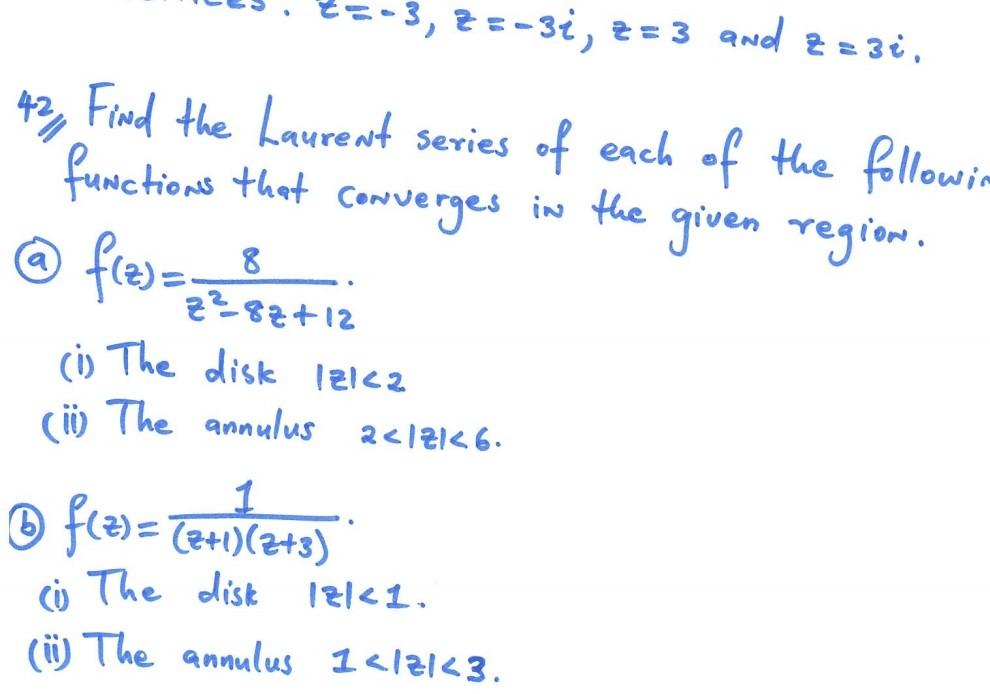 z=-3, z=-3i, z=3 and z=3i.
42, Find the Laurent series of each of the followin
functions that converges in the given region.
(a) f(z)= 8 / z²-8z+12 .
(i) The disk |z|<2
(ii) The annulus 2<|z|<6.
(b) f(z)= 1 / (z+1)(z+3) .
(i) The disk |z|<1.
(ii) The annulus 1<|z|<3.